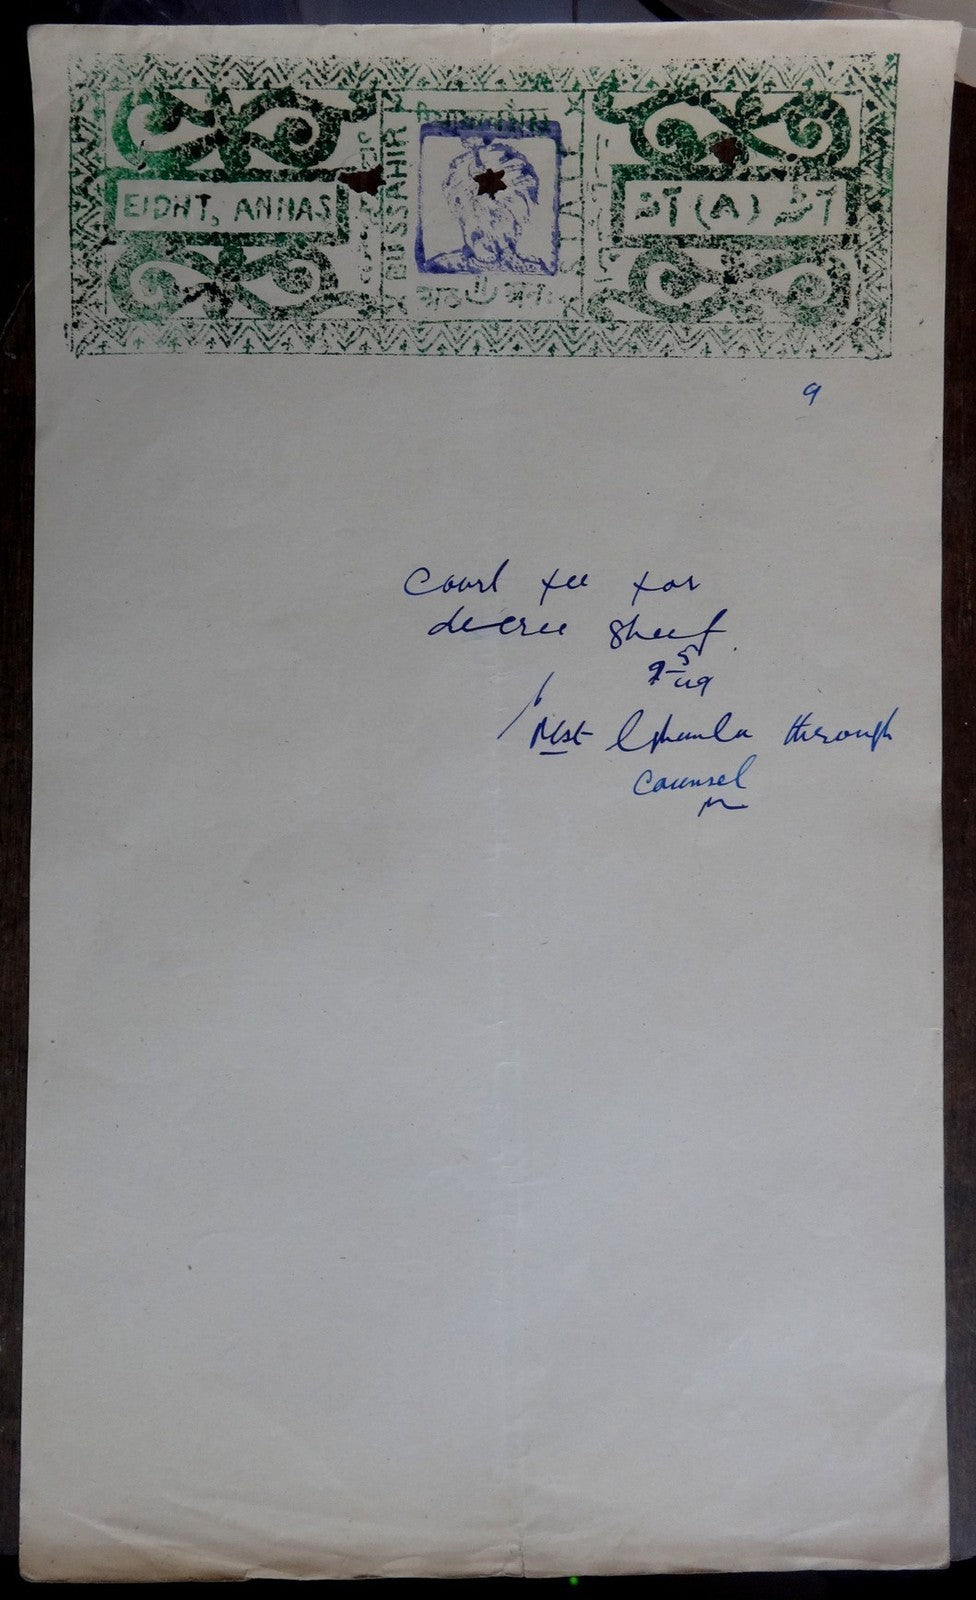 EIDHT, ANNAS
BUSSAHIR
STATE
آٹھ (A) آنہ
आठ
9
Court fee for
decree sheet.
9-5
49
Mst through
Counsel